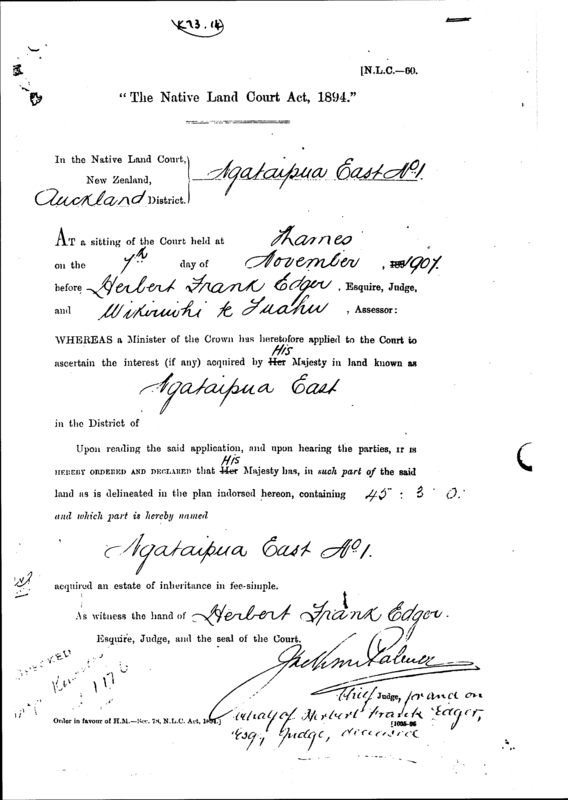 K73.14
[N.L.C.—60.
"The Native Land Court Act, 1894."
In the Native Land Court,
New Zealand,
Auckland District.
Ngataipua East No 1.
AT a sitting of the Court held at Thames
on the 7th day of November , 1907.
before Herbert Frank Edger , Esquire, Judge,
and Wikiriwhi te Tuahu , Assessor:
WHEREAS a Minister of the Crown has heretofore applied to the Court to
ascertain the interest (if any) acquired by Her His Majesty in land known as
Ngataipua East
in the District of
Upon reading the said application, and upon hearing the parties, IT IS
HEREBY ORDERED AND DECLARED that Her His Majesty has, in such part of the said
land as is delineated in the plan indorsed hereon, containing 45 : 3 : 0.
and which part is hereby named
Ngataipua East No 1.
acquired an estate of inheritance in fee-simple.
As witness the hand of Herbert Frank Edger.
Esquire, Judge, and the seal of the Court.
Palmer
Chief Judge, for and on
behalf of Herbert Frank Edger,
Esq, Judge, deceased
Order in favour of H.M.—Sec. 78, N.L.C. Act, 1894.]
CHECKED